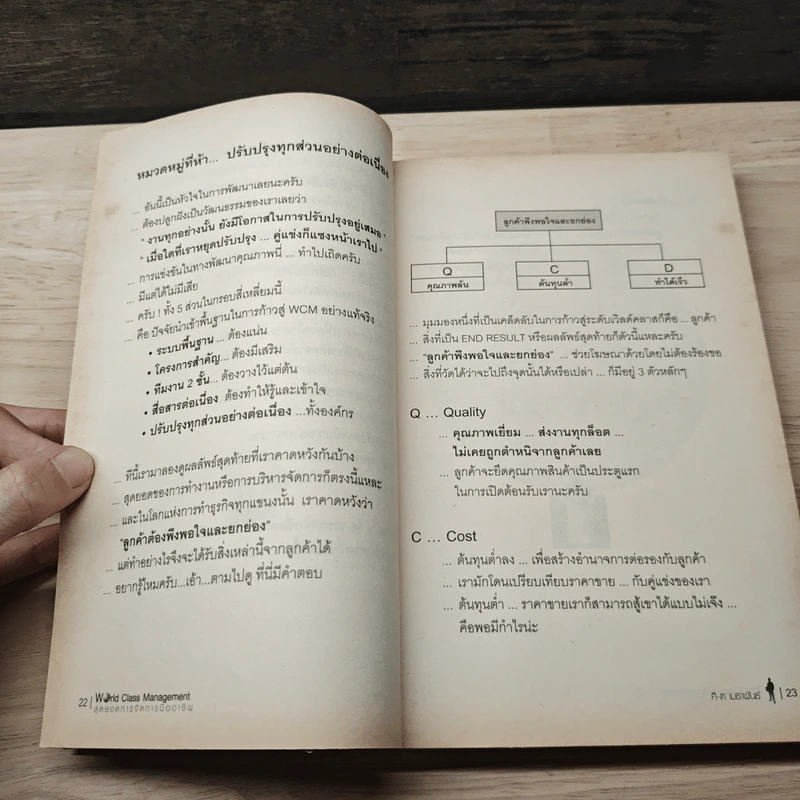 หมวดหมู่ที่ห้า... ปรับปรุงทุกส่วนอย่างต่อเนื่อง
... อันนี้เป็นหัวใจในการพัฒนาเลยนะครับ
... ต้องปลูกฝังเป็นวัฒนธรรมของเราเลยว่า
" งานทุกอย่างนั้น ยังมีโอกาสในการปรับปรุงอยู่เสมอ "
" เมื่อใดที่เราหยุดปรับปรุง ... คู่แข่งก็แซงหน้าเราไป "
... การแข่งขันในทางพัฒนาคุณภาพนี้ ... ทำไปเถิดครับ
... มีแต่ได้ไม่มีเสีย
... ครับ ! ทั้ง 5 ส่วนในกรอบสี่เหลี่ยมนี้
... คือ ปัจจัยนำเข้าพื้นฐานในการก้าวสู่ WCM อย่างแท้จริง
• ระบบพื้นฐาน ... ต้องแน่น
• โครงการสำคัญ... ต้องมีเสริม
• ทีมงาน 2 ชั้น... ต้องวางไว้แต่ต้น
• สื่อสารต่อเนื่อง ต้องทำให้รู้และเข้าใจ
• ปรับปรุงทุกส่วนอย่างต่อเนื่อง ...ทั้งองค์กร
... ทีนี้เรามาลองดูผลลัพธ์สุดท้ายที่เราคาดหวังกันบ้าง
... สุดยอดของการทำงานหรือการบริหารจัดการก็ตรงนี้แหละ
... และในโลกแห่งการทำธุรกิจทุกแขนงนั้น เราคาดหวังว่า
"ลูกค้าต้องพึงพอใจและยกย่อง"
... แต่ทำอย่างไรจึงจะได้รับสิ่งเหล่านี้จากลูกค้าได้
... อยากรู้ไหมครับ...เอ้า...ตามไปดู ที่นี่มีคำตอบ
22 | World Class Management
สุดยอดการจัดการมืออาชีพ
ลูกค้าพึงพอใจและยกย่อง
Q C D
คุณภาพล้น ต้นทุนต่ำ ทำได้เร็ว
... มุมมองหนึ่งที่เป็นเคล็ดลับในการก้าวสู่ระดับเวิลด์คลาสก็คือ ... ลูกค้า
... สิ่งที่เป็น END RESULT หรือผลลัพธ์สุดท้ายก็ตัวนี้แหละครับ
... "ลูกค้าพึงพอใจและยกย่อง" ... ช่วยโฆษณาด้วยโดยไม่ต้องร้องขอ
... สิ่งที่วัดได้ว่าจะไปถึงจุดนั้นได้หรือเปล่า ... ก็มีอยู่ 3 ตัวหลักๆ
Q ... Quality
... คุณภาพเยี่ยม ... ส่งงานทุกล็อต ...
ไม่เคยถูกตำหนิจากลูกค้าเลย
... ลูกค้าจะยึดคุณภาพสินค้าเป็นประตูแรก
ในการเปิดต้อนรับเรานะครับ
C ... Cost
... ต้นทุนต่ำลง ... เพื่อสร้างอำนาจการต่อรองกับลูกค้า
... เรามักโดนเปรียบเทียบราคาขาย ... กับคู่แข่งของเรา
... ต้นทุนต่ำ ... ราคาขายเราก็สามารถสู้เขาได้แบบไม่เจ๊ง ...
คือพอมีกำไรน่ะ
| 23